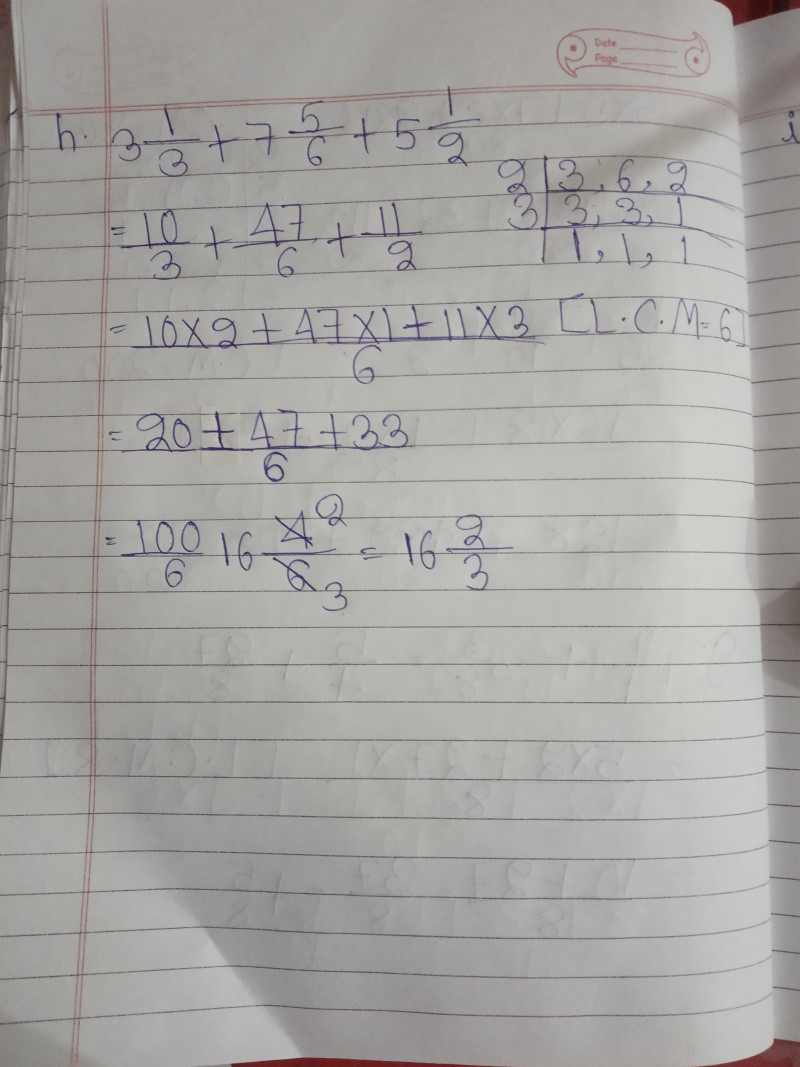 Date
Page
h. 3 1/3 + 7 5/6 + 5 1/2
2 | 3, 6, 2
3 | 3, 3, 1
1, 1, 1
= 10/3 + 47/6 + 11/2
= 10×2 + 47×1 + 11×3 / 6 [L.C.M=6]
= 20 + 47 + 33 / 6
= 100/6 16 4/6 2 3 = 16 2/3
i